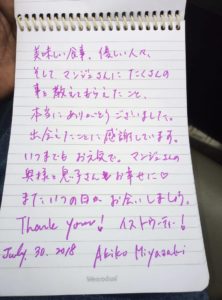 美味しい食事、優しい人々、
そして マンジュさんに たくさんの
事を教えてもらえたこと、
本当にありがとうございました。
出会えたことに感謝しています。
いつまでも お元気で。マンジュさんの
奥様と息子さんもお幸せに♡
また いつの日か お会いしましょう。
Thank youu! イストゥーティー!
July. 30. 2018 Akiko Miyazaki